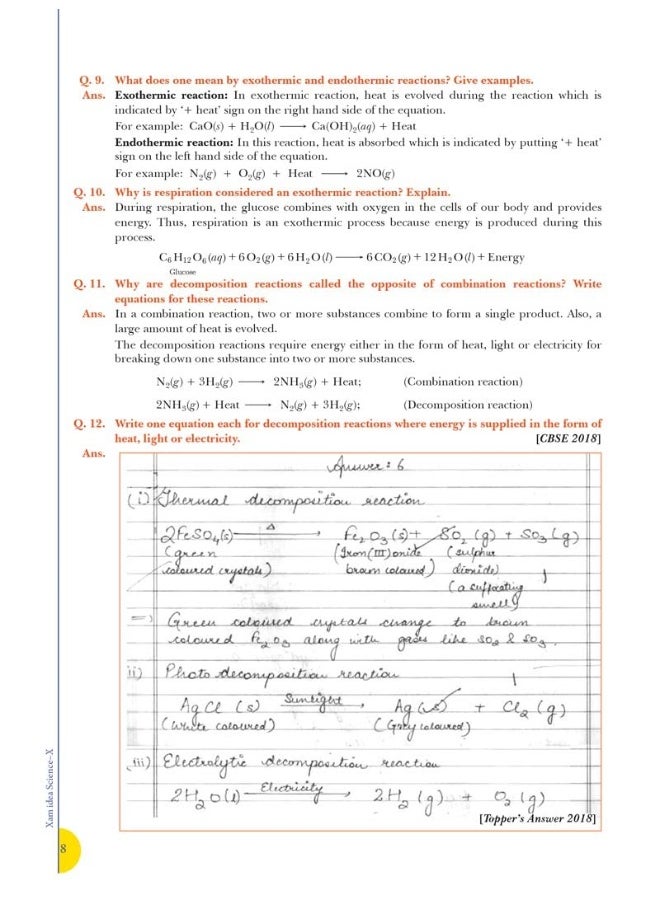 Q. 9. What does one mean by exothermic and endothermic reactions? Give examples.
Ans. Exothermic reaction: In exothermic reaction, heat is evolved during the reaction which is
indicated by '+ heat' sign on the right hand side of the equation.
For example: CaO(s) + H₂O(l) ⟶ Ca(OH)₂(aq) + Heat
Endothermic reaction: In this reaction, heat is absorbed which is indicated by putting '+ heat'
sign on the left hand side of the equation.
For example: N₂(g) + O₂(g) + Heat ⟶ 2NO(g)
Q. 10. Why is respiration considered an exothermic reaction? Explain.
Ans. During respiration, the glucose combines with oxygen in the cells of our body and provides
energy. Thus, respiration is an exothermic process because energy is produced during this
process.
C₆H₁₂O₆(aq) + 6O₂(g) + 6H₂O(l) ⟶ 6CO₂(g) + 12H₂O(l) + Energy
Glucose
Q. 11. Why are decomposition reactions called the opposite of combination reactions? Write
equations for these reactions.
Ans. In a combination reaction, two or more substances combine to form a single product. Also, a
large amount of heat is evolved.
The decomposition reactions require energy either in the form of heat, light or electricity for
breaking down one substance into two or more substances.
N₂(g) + 3H₂(g) ⟶ 2NH₃(g) + Heat; (Combination reaction)
2NH₃(g) + Heat ⟶ N₂(g) + 3H₂(g); (Decomposition reaction)
Q. 12. Write one equation each for decomposition reactions where energy is supplied in the form of
heat, light or electricity. [CBSE 2018]
Ans.
Answer : 6
(i) Thermal decomposition reaction
2FeSO₄(s) —Δ→ Fe₂O₃(s) + SO₂(g) + SO₃(g)
(green (Iron(III) oxide (sulphur
coloured crystals) brown coloured) dioxide)
(a suffocating
smell)
=) Green coloured crystals change to brown
coloured Fe₂O₃ along with gases like SO₂ & SO₃.
ii) Photo decomposition reaction
AgCl (s) —Sunlight→ Ag(s) + Cl₂(g)
(White coloured) (Grey coloured)
iii) Electrolytic decomposition reaction
2H₂O(l) —Electricity→ 2H₂(g) + O₂(g)
[Topper's Answer 2018]
Xam idea Science–X
8